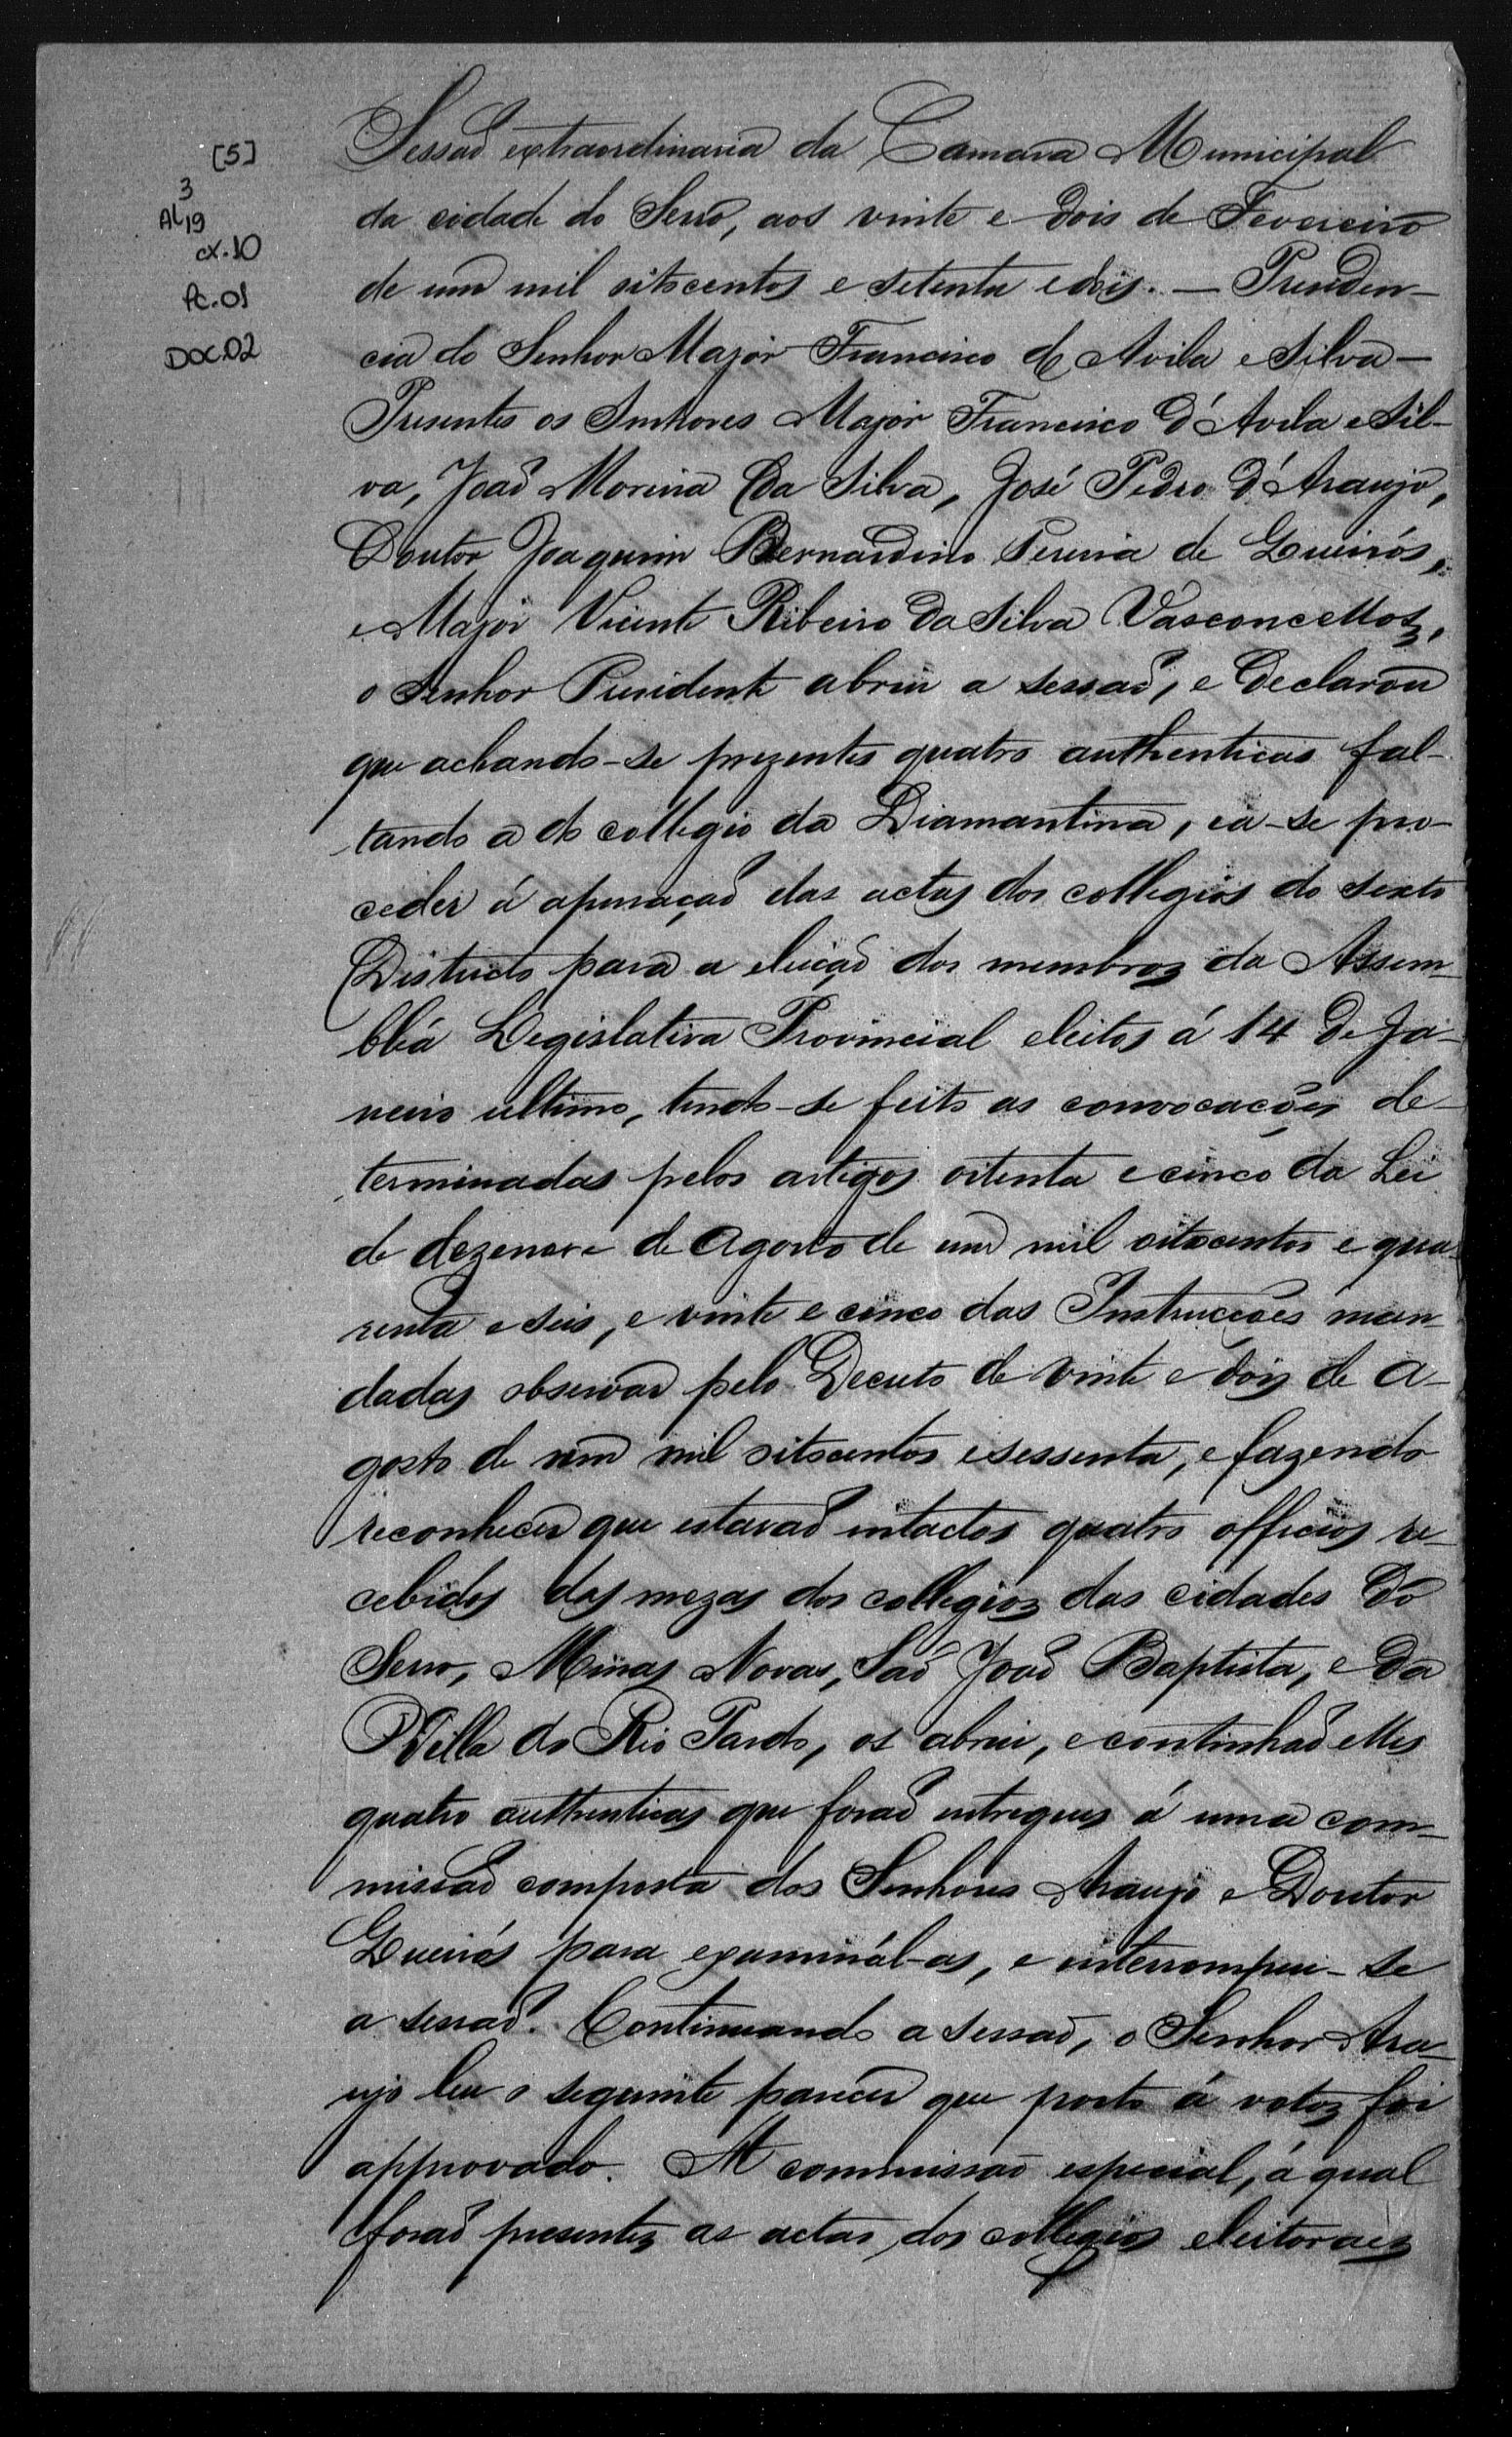 [5]
3
AL19
cx.10
Pc.01
DOC.02
Sessaõ extraordinaria da Camara Municipal
da cidade do Serro, aos vinte e dois de Fevereiro
de um mil oitocentos e setenta e dois. — Presiden-
cia do Senhor Major Francisco de Avila e Silva —
Presentes os Senhores Major Francisco d'Avila e Sil-
va, Joaõ Moreira da Silva, José Pedro d'Araujo,
Doutor Joaquim Bernardino Pereira de Queirós,
e Major Vicente Ribeiro da Silva Vasconcellos,
o Senhor Presidente abriu a sessaõ, e declarou
que achando-se prezentes quatro authenticas fal-
tando a do collegio da Diamantina, ia-se pro-
ceder á apuraçaõ das actas dos collegios do sexto
Districto para a eleiçaõ dos membros da Assem-
bléa Legislativa Provincial eleitos á 14 de Ja-
neiro ultimo, tendo-se feito as convocações de-
terminadas pelos artigos oitenta e cinco da Lei
de dezenove de Agosto de um mil oitocentos e qua-
renta e seis, e vinte e cinco das Instrucções man-
dadas observar pelo Decreto de vinte e dois de A-
gosto de um mil oitocentos e sessenta, e fazendo
reconhecer que estavaõ intactos quatro officios re-
cebidos das mezas dos collegios das cidades do
Serro, Minas Novas, Saõ Joaõ Baptista, e da
Villa do Rio Pardo, os abriu, e continhaõ elles
quatro authenticas que foraõ entregues á uma com-
missaõ composta dos Senhores Araujo e Doutor
Queirós para examinál-as, e interrompeu-se
a sessaõ. Continuando a sessaõ, o Senhor Ara-
ujo leu o seguinte parecer que posto á votos foi
approvado. A commissaõ especial, á qual
foraõ presentes as actas dos collegios eleitoraes